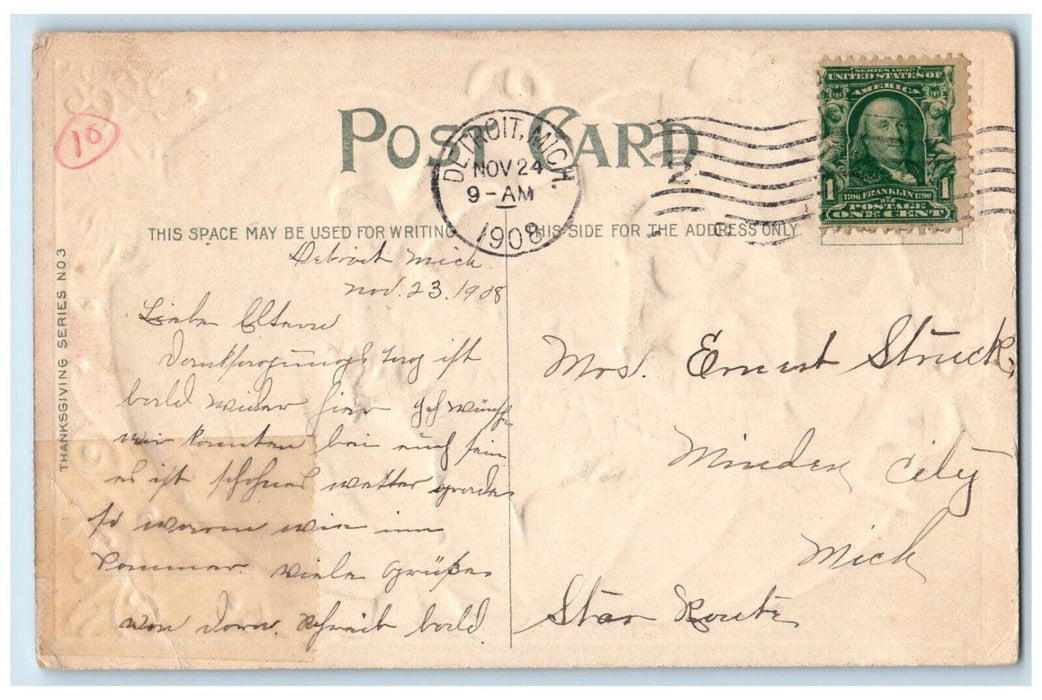 10
POST CARD
DETROIT, MICH.
NOV 24
9-AM
1908
SERIES 1902
UNITED STATES OF
AMERICA
1 1706 FRANKLIN 1790 1
POSTAGE
ONE CENT
THIS SPACE MAY BE USED FOR WRITING
THIS SIDE FOR THE ADDRESS ONLY.
THANKSGIVING SERIES NO 3
Detroit Mich.
Nov. 23. 1908
Liebe Eltern
Danksagungs tag ist
bald wider hier Ich wünsch
wir konnten bei euch sein
es ist schönes wetter grade
so warm wie im
Sommer. viele grüße
von Schreib bald
Mrs. Ernest Struck,
Minden City
Mich
Star Route